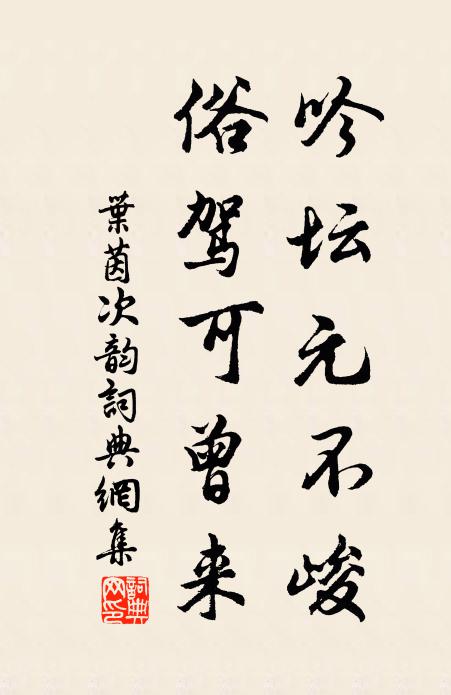 吟坛元不峻
俗驾可曾来
葉茵次韵詞典網集
詞典網印